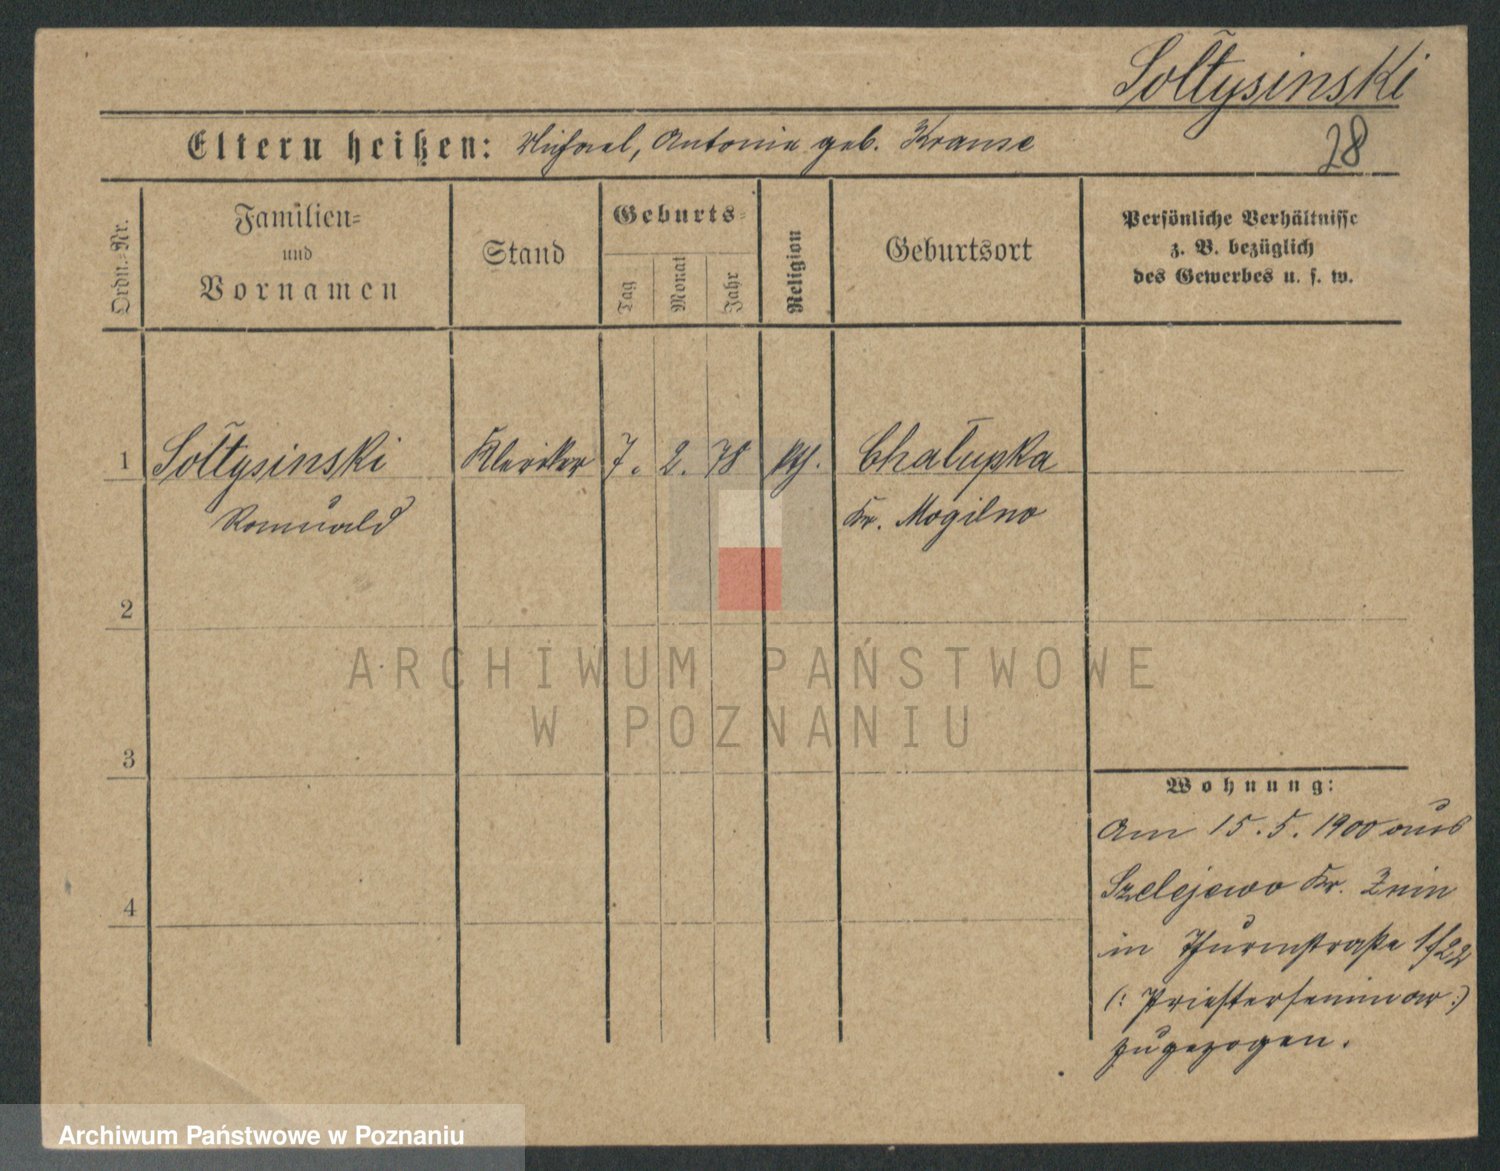 Sołtysinski
Eltern heißen: Michael, Antonie geb. Krause
28
Ordn.-Nr.
Familien-
und
Vornamen
Stand
Geburts-
Tag
Monat
Jahr
Religion
Geburtsort
Persönliche Verhältnisse
z. B. bezüglich
des Gewerbes u. s. w.
1 Sołtysinski Kleriker 7. 2. 78 kth. Chałupka
Romuald Kr. Mogilno
2
ARCHIWUM PAŃSTWOWE
W POZNANIU
3
Wohnung:
Am 15.5.1900 aus
Szelejewo Kr. Znin
4
in Thurmstraße 1/22
(: Priesterseminar :)
zugezogen.
Archiwum Państwowe w Poznaniu